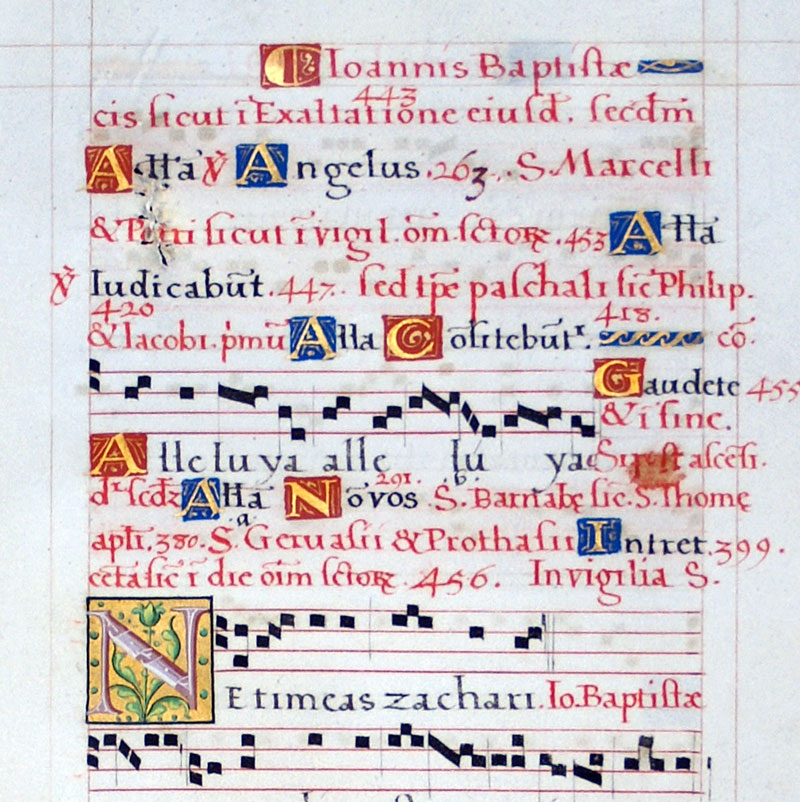 C Ioannis Baptistæ
443
cis sicut ī Exaltatione eiusd. secdm̄
Alła ℣ Angelus. 263. S. Marcelli
& Petri sicut ī vigil. om̄. sctoꝝ. 453 Alła
℣ Iudicabūt. 447. sed tp̄e paschali sic Philip.
420 418.
& Iacobi. pͥmū Alła Cōfitebūtʳ. cō.
Gaudete 455
& ī fine.
Alleluya alle lu ya
ascēsi.
291.
Alła Nōvos S. Barnabę sic. S. Thomę
.a. .b.
apłi. 380. S. Geruasii & Prothasii Intret. 399.
cetā sic ī die oīm sctoꝝ. 456. In vigilia S.
NE timeas zachari. Io. Baptistæ